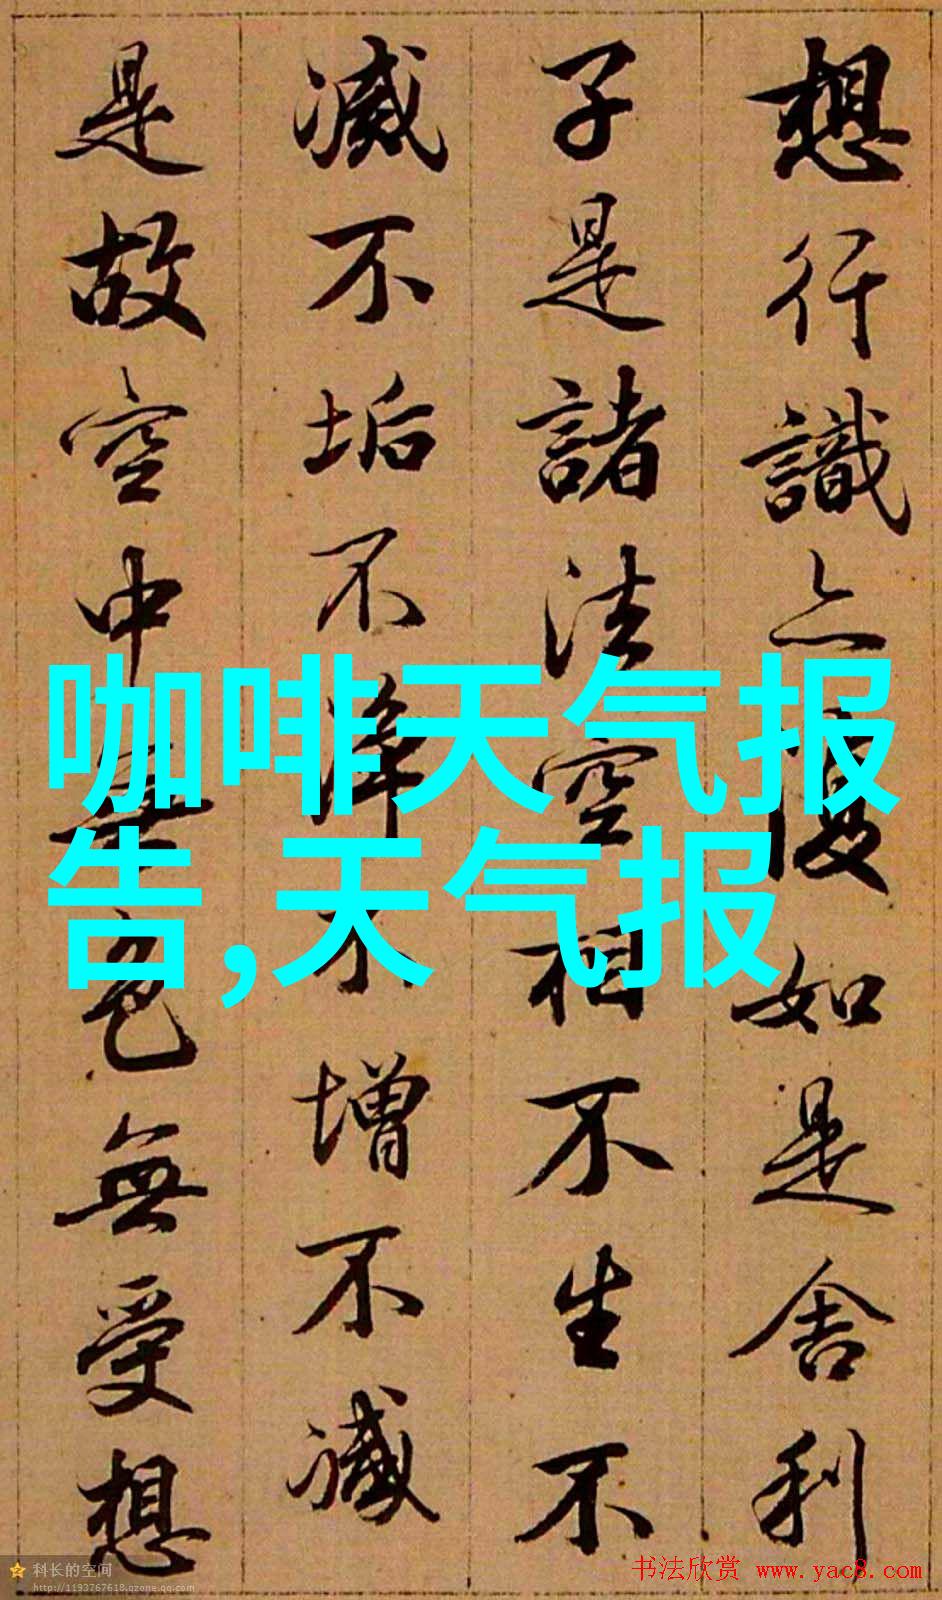 想行識亦復如是舍利
子是諸法空相不生不
滅不垢不淨不增不減
是故空中無色無受想
咖啡天气报
告,天气报
科长的空间
http://1193767618.qzone.qq.com
书法欣赏 www.yac8.com